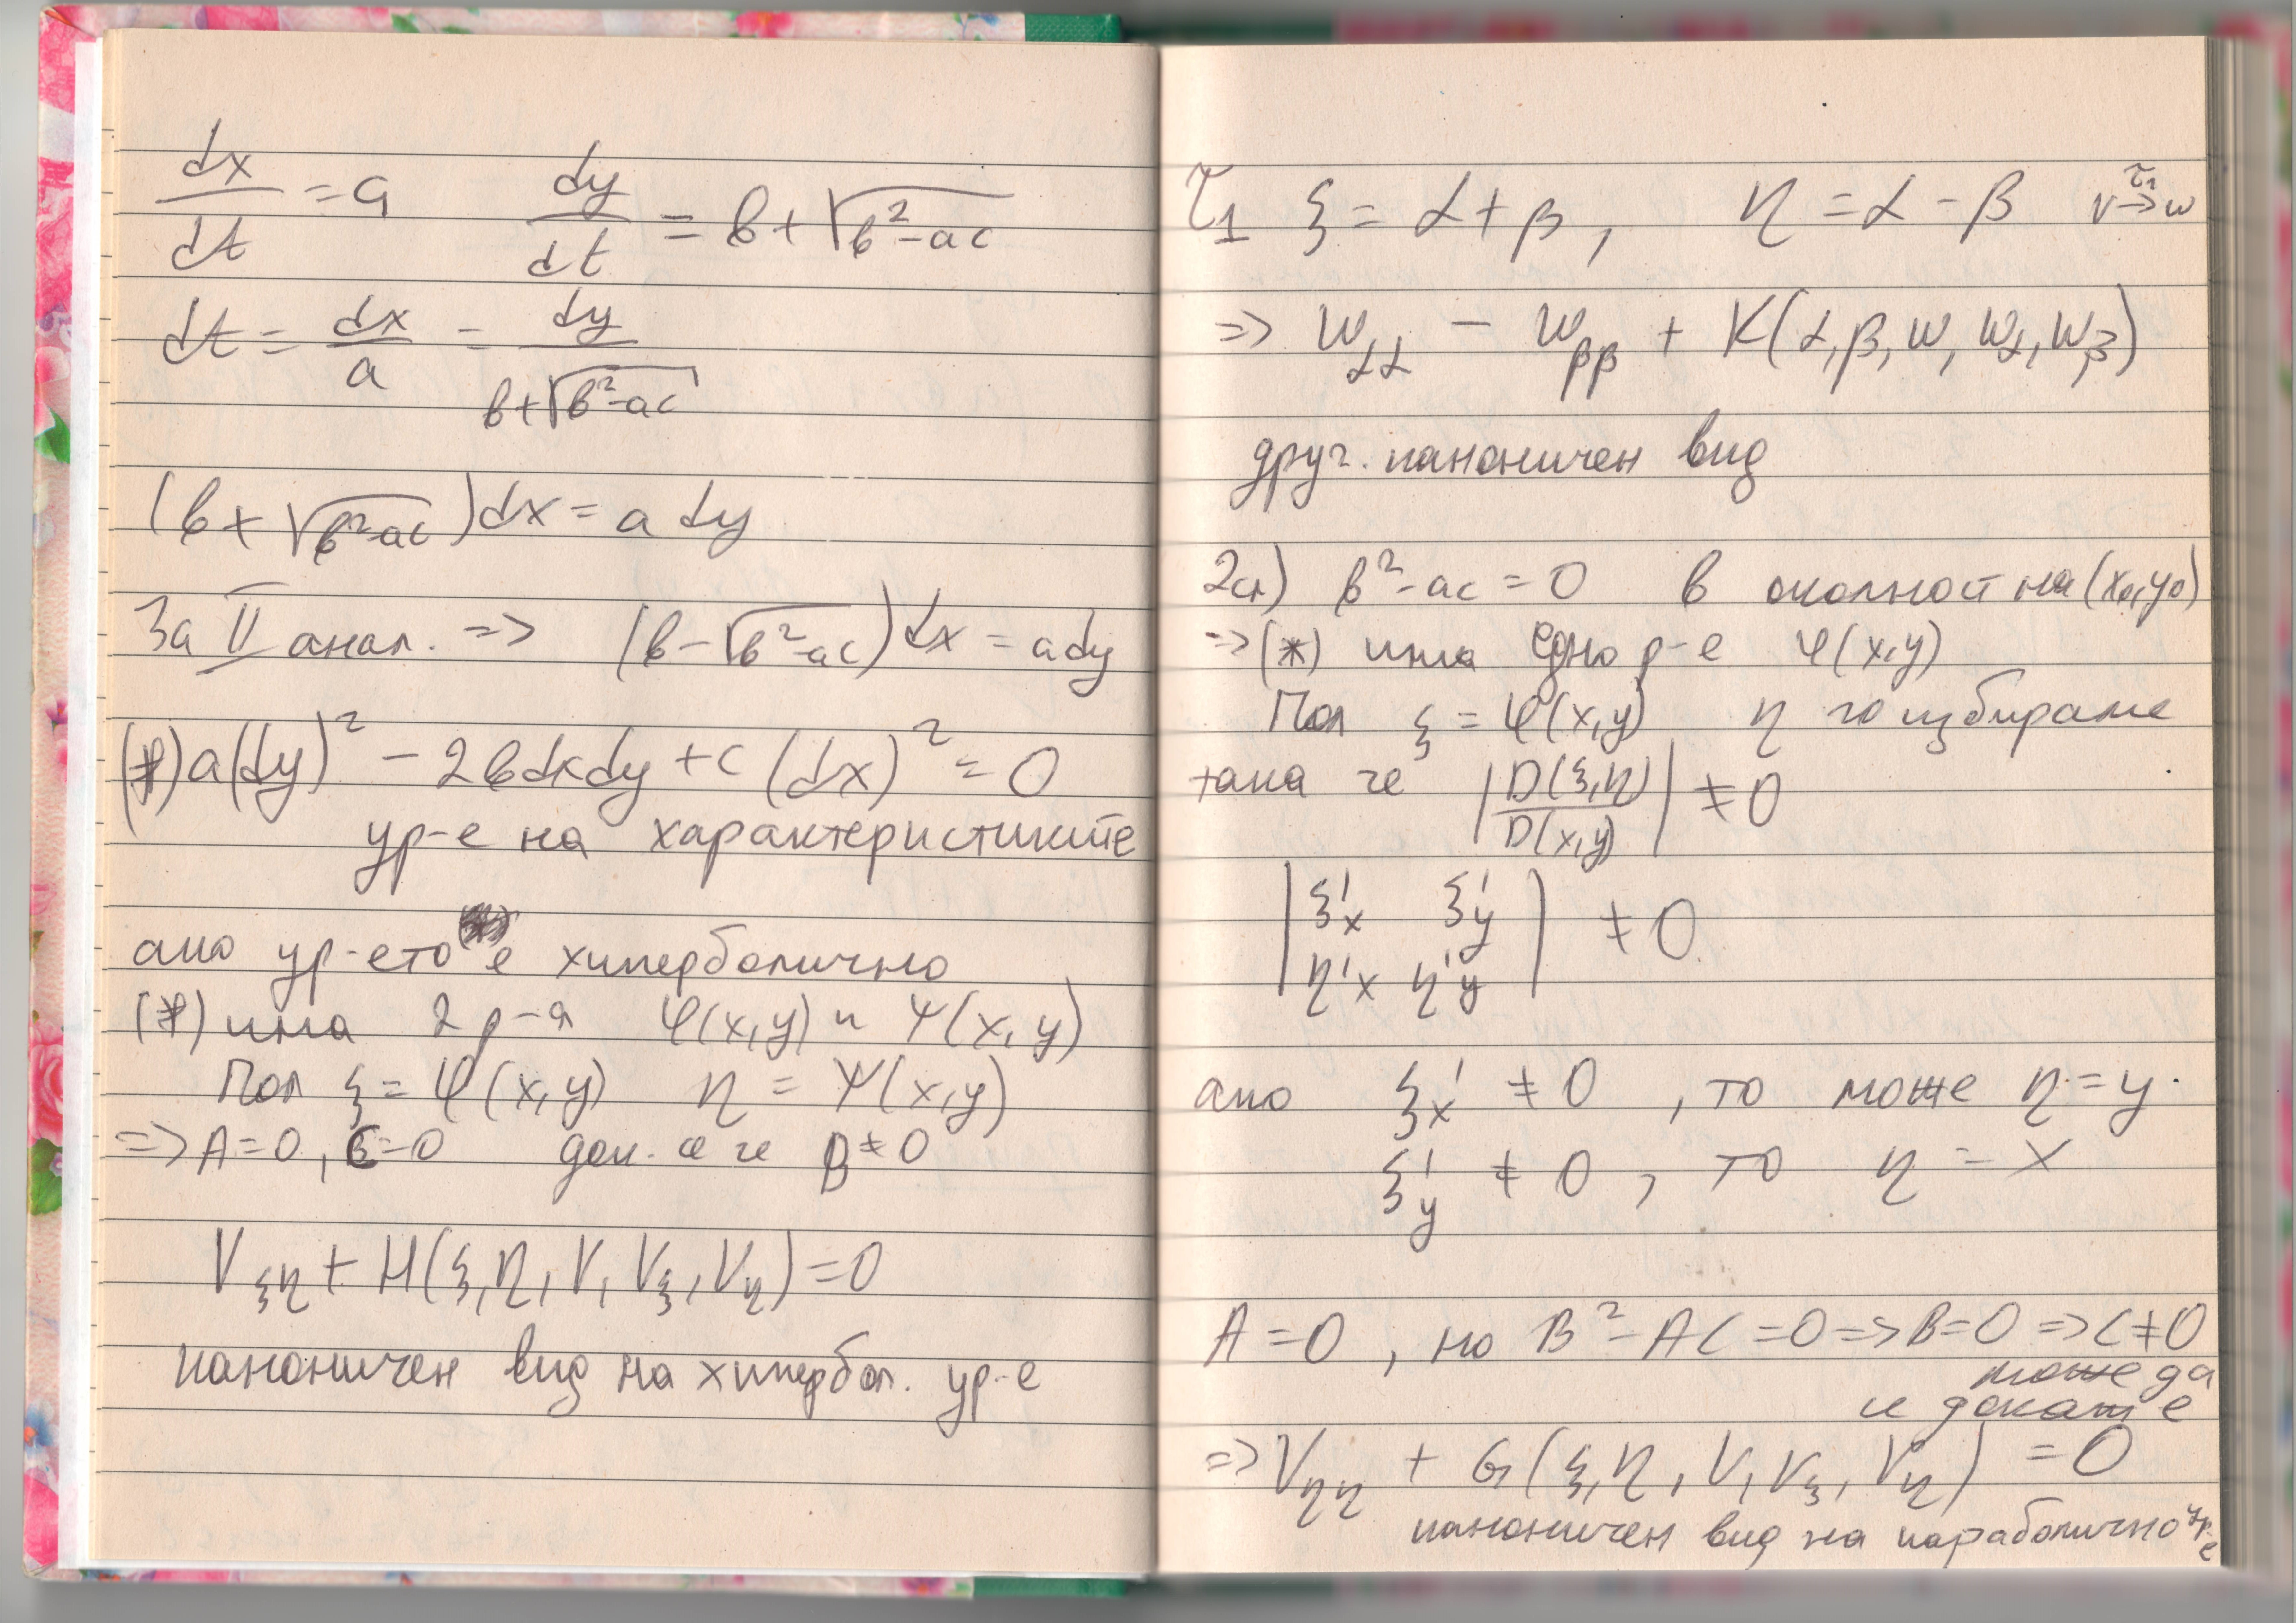 dx/dt = a dy/dt = b + √(b² - ac)
dt = dx/a = dy/(b + √(b² - ac))
(b + √(b² - ac))dx = a dy
За II анал. => (b - √(b² - ac))dx = ady
(*) a(dy)² - 2bdxdy + c(dx)² = 0
ур-е на характеристиките
ако ур-ето е хиперболично
(*) има 2 р-я φ(x,y) и ψ(x,y)
Пол ξ = φ(x,y) η = ψ(x,y)
=> A = 0, C = 0 док. се че B ≠ 0
V_ξη + H(ξ,η,V,V_ξ,V_η) = 0
каноничен вид на хипербол. ур-е
τ₁ ξ = α + β, η = α - β v →^τ₁ w
=> w_αα - w_ββ + K(α,β,w,w_α,w_β)
друг. каноничен вид
2сл) b² - ac = 0 в околност на (x₀,y₀)
=> (*) има едно р-е φ(x,y)
Пол ξ = φ(x,y) η го избираме
така че |D(ξ,η)/D(x,y)| ≠ 0
|ξ'x ξ'y|
|η'x η'y| ≠ 0
ако ξ'x ≠ 0, то може η = y.
ξ'y ≠ 0, то η = x
A = 0, но B² - AC = 0 => B = 0 => C ≠ 0
може да
се докаже
=> V_ηη + G(ξ,η,V,V_ξ,V_η) = 0
каноничен вид на параболично ур-е